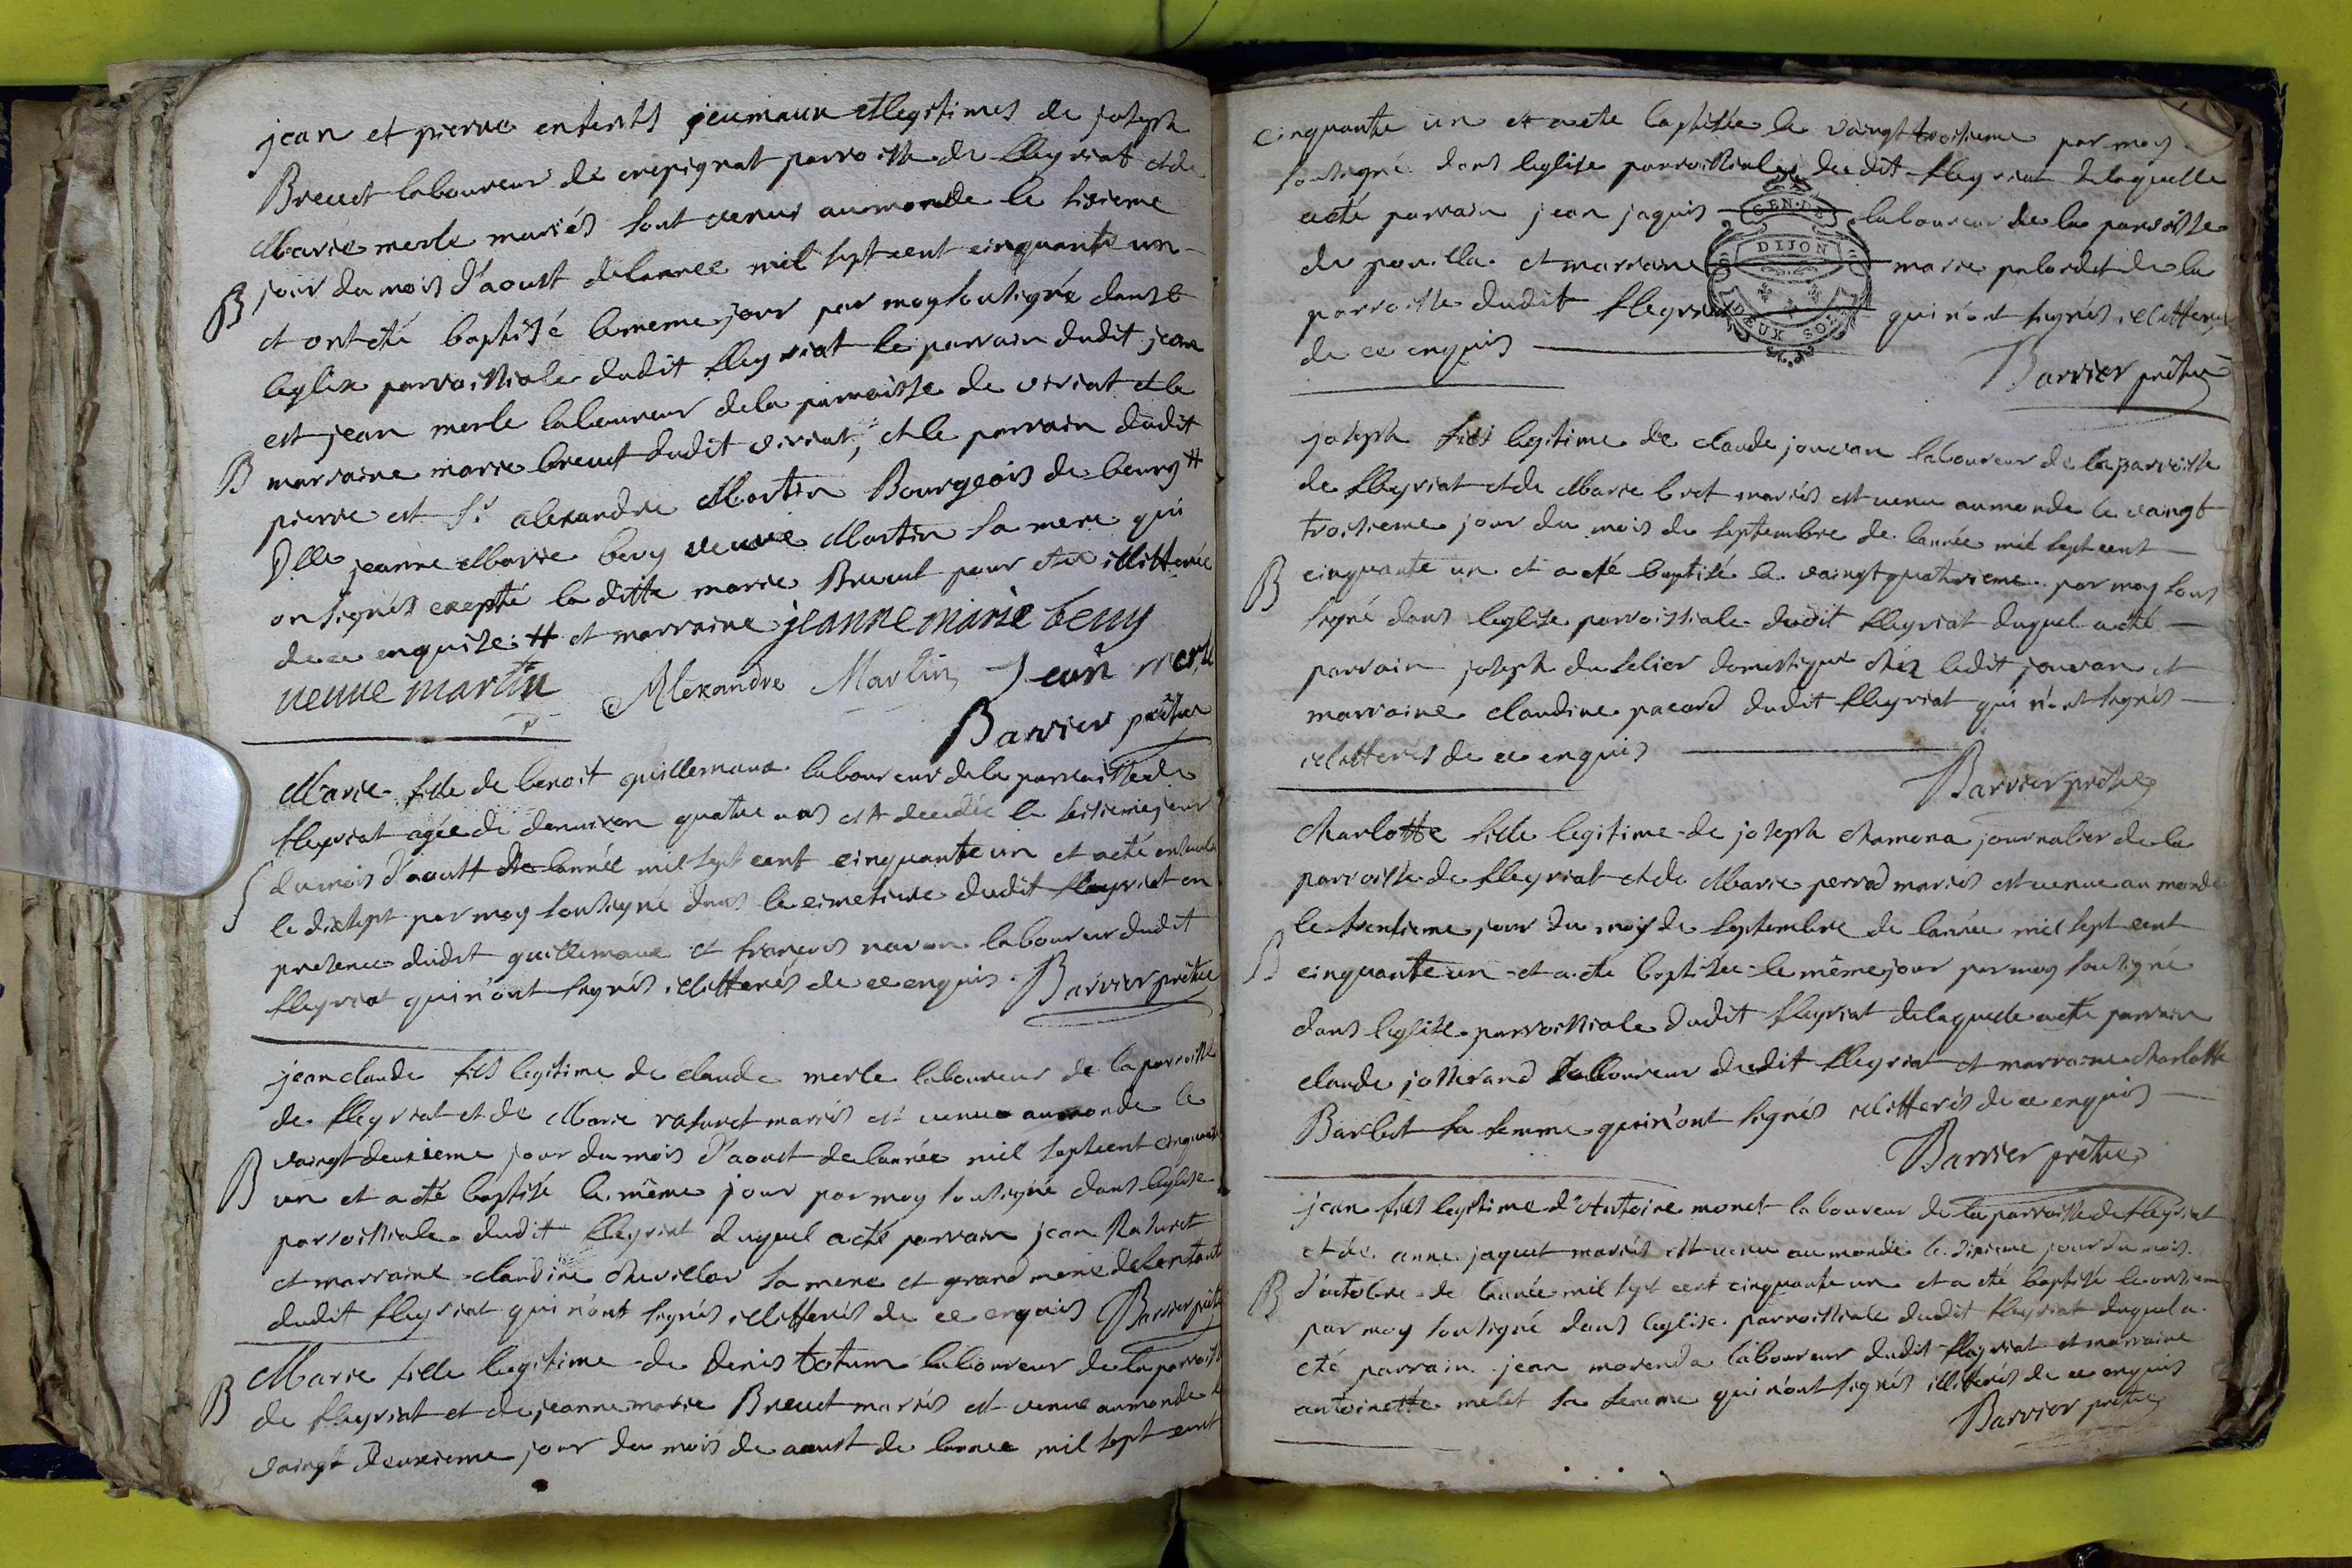 jean et pierre enfents jeumaux et legitimes de joseph
Breuet laboureur de crepignat parroisse de fleyriat et de
Marie merle mariés sont venus au monde le sixieme
B jour du mois d'aoust de lannee mil sept cent cinquante un
et ont eté baptisé le meme jour par moy soussigné dans l
eglise parroissiale dudit fleyriat le parrain dudit jean
est jean merle laboureur de la parroisse de viriat et la
B marraine marie breuet dudit viriat, et le parrain dudit
pierre est Sr alexandre Martin Bourgeois de bourg #
Dlle jeanne Marie beuy veuve Martin sa mere qui
on signés excepté la ditte marie Breuet pour etre illitterée
de ce enquise. # et marraine jeanne marie beuy
veuve martin Alexandre Martin Jean merle
Barvier prêtre
Marie fille de benoit guillemaux laboureur de la parroisse de
fleyriat agée de denviron quatre ans est decedée le seisieme jour
S du mois d'aoust de lannée mil sept cent cinquante un et a eté
le dixsept par moy soussigné dans le cimetiere dudit fleyriat en
presence dudit guillemaux et francois navan laboureur dudit
fleyriat qui n'ont signés illitterés de ce enquis. Barvier prêtre
jean claude fils legitime de claude merle laboureur de la parroisse
de fleyriat et de Marie rasuret mariés est venu au monde le
B vaingt deuxieme jour du mois d'aoust de lannée mil sept cent cinquante
un et a eté baptisé le même jour par moy soussigné dans leglise
parroissiale dudit fleyriat duquel a eté parrain jean Rasuret
et marraine claudine chevillar sa mere et grand mere de lenfant
dudit fleyriat qui n'ont signés illitterés de ce enquis Barvier prêtre
B Marie fille legitime de denis totum laboureur de la parroisse
de fleyriat et de jeanne marie Breuet mariés est venue au monde le
vaingt deuxieme jour du mois de aoust de lannee mil sept cent
cinquante un et a eté baptisée le vaingt troisieme par moy
soussigné dans leglise parroissiale dudit fleyriat de laquelle
a eté parrain jean jaquis laboureur de la parroisse
de pouilla et marraine marie palordet de la
parroisse dudit fleyriat qui n'ont signés illitterés
de ce enquis
GEN. DE DIJON DEUX SOLS
Barvier prêtre
joseph fils legitime de claude jouvan laboureur de la parroisse
de fleyriat et de Marie bret mariés est venu au monde le vaingt
troisieme jour du mois de septembre de lannée mil sept cent
B cinquante un et a eté baptisé le vaingt quatrieme par moy sous
signé dans leglise parroissiale dudit fleyriat duquel a eté
parrain joseph du selier domestique chéz ledit jouvan et
marraine claudine pacard dudit fleyriat qui n'ont signés
illitterés de ce enquis
Barvier prêtre
charlotte fille legitime de joseph chamona journalier de la
parroisse de fleyriat et de Marie perrod mariés est venue au monde
le trentieme jour du moy de septembre de lannée mil sept cent
B cinquante un et a eté baptisée le même jour par moy soussigné
dans leglise parroissiale dudit fleyriat de laquelle a eté parrain
claude josserand laboureur dudit fleyriat et marraine charlotte
Barbet sa femme qui n'ont signés illitterés de ce enquis
Barvier prêtre
jean fils legitime d'Antoine monet laboureur de la parroisse de fleyriat
et de anne jaquet mariés est venu au monde le dixieme jour du mois
B d'octobre de lannée mil sept cent cinquante un et a eté baptisé le onsieme
par moy soussigné dans leglise parroissiale dudit fleyriat duquel a
eté parrain jean morenda laboureur dudit fleyriat et marraine
antoinette melit sa femme qui n'ont signés illiterés de ce enquis
Barvier prêtre